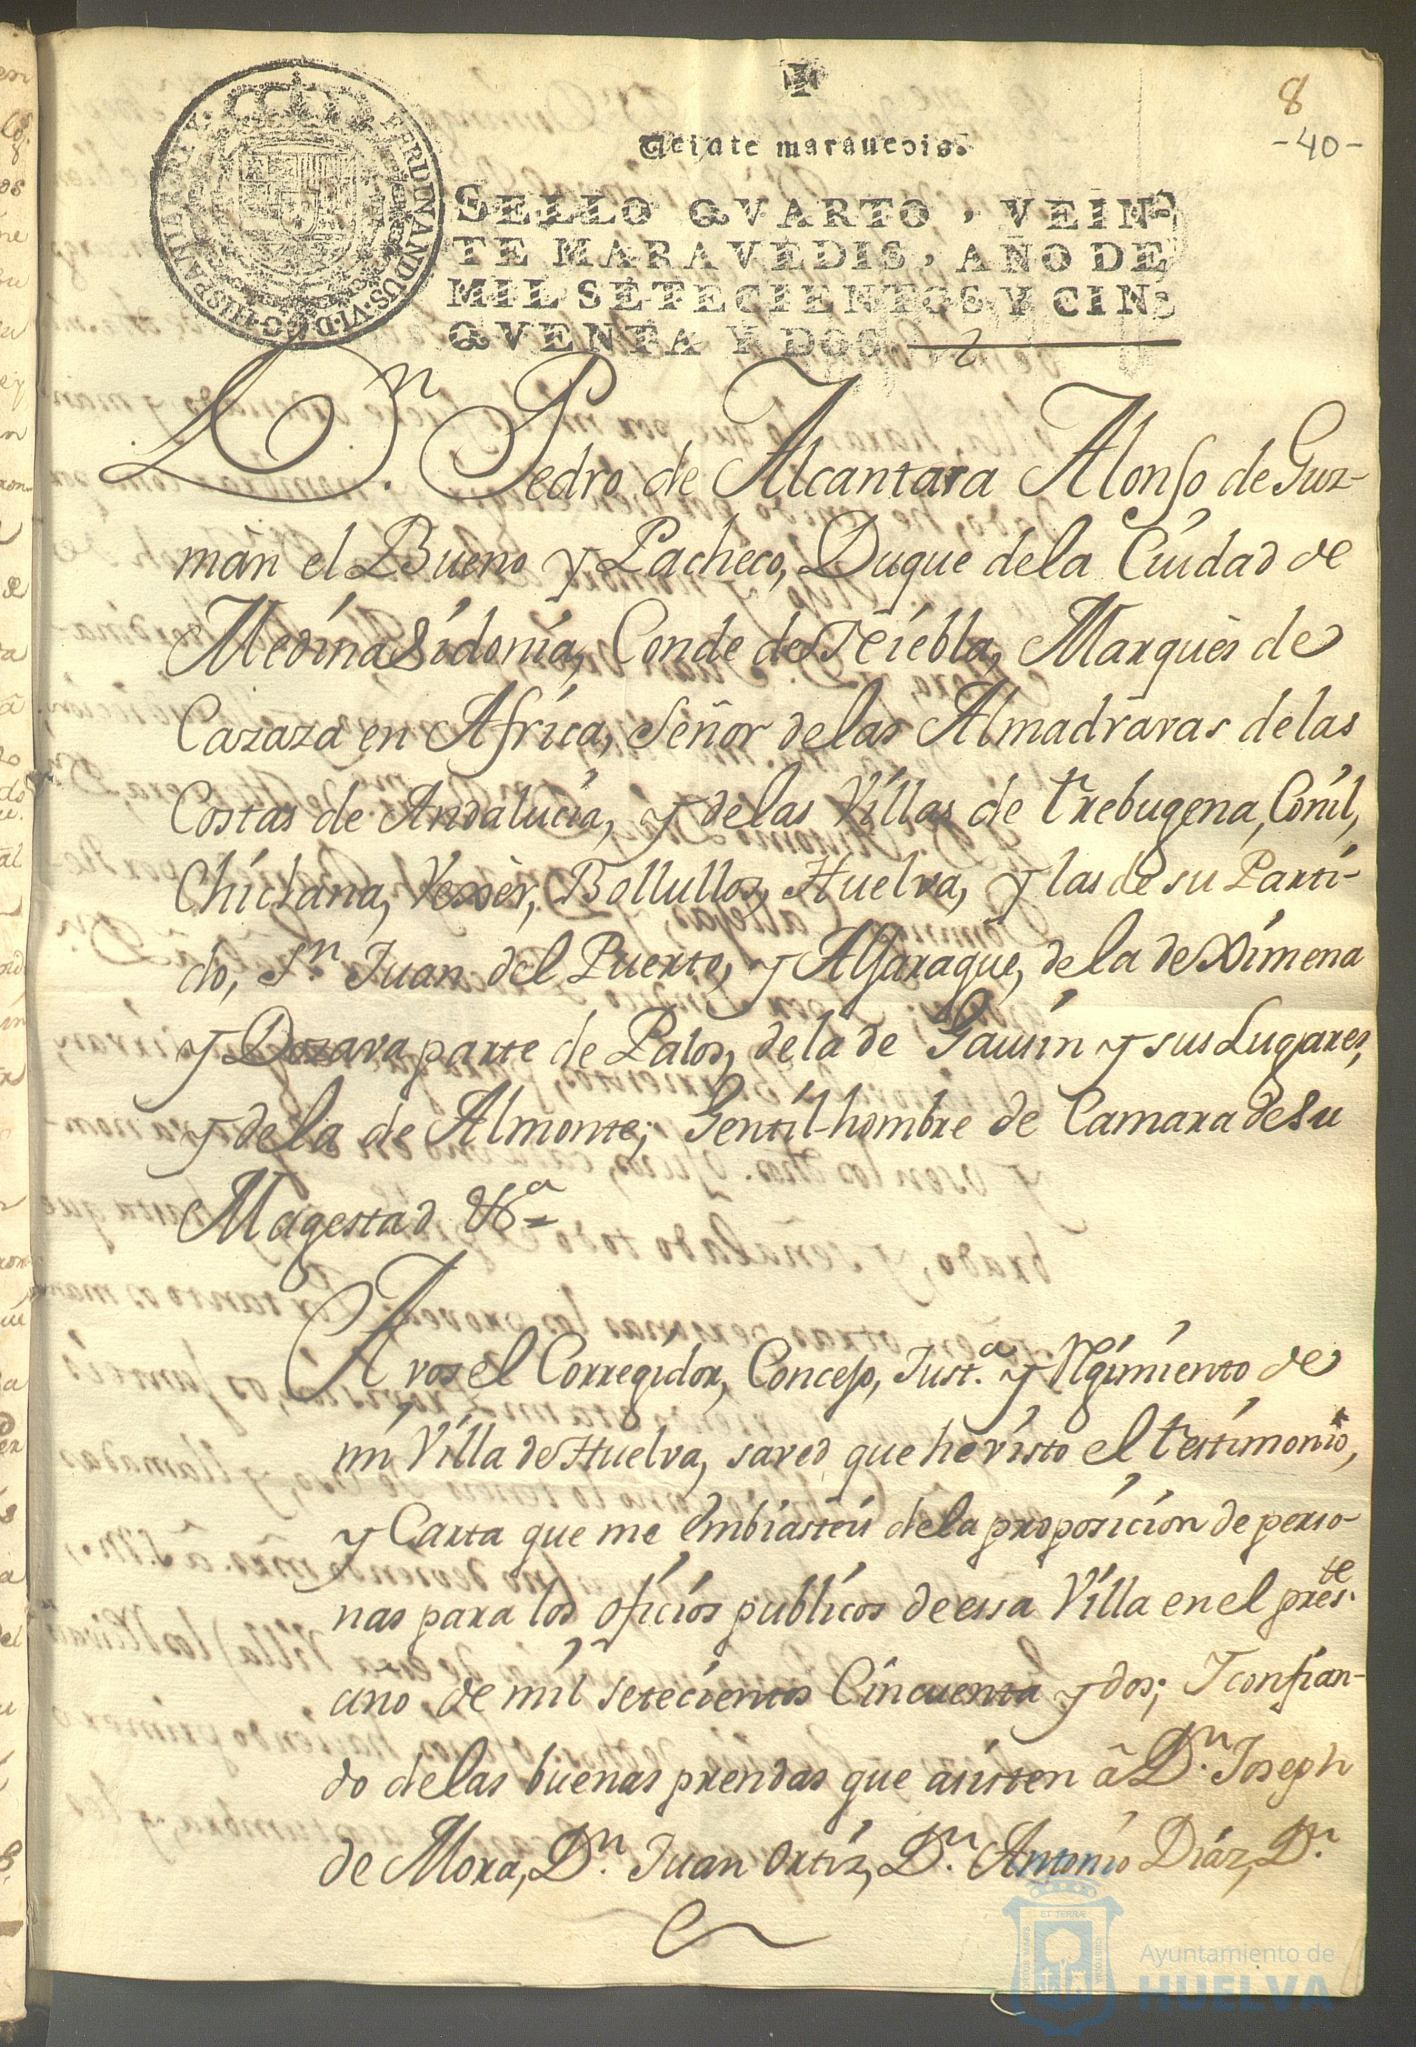 8
-40-
Veinte maravedis.
SELLO QVARTO, VEIN-
TE MARAVEDIS, AÑO DE
MIL SETECIENTOS Y CIN-
QVENTA Y DOS
FERDINANDUS·VI·D·G·HISPANIAR·REX·
Dn. Pedro de Alcantara Alonso de Guz-
mán el Bueno y Pacheco, Duque de la Ciudad de
Medina Sidonia, Conde de Niebla, Marquès de
Cazaza en Africa, Señor de las Almadravas de las
Costas de Andalucia, y de las Villas de trebugena, Conil,
Chiclana, Vexèr, Bollullos, Huelva, y las de su Parti-
do, Sn. Juan del Puerto, y Aljaraque, de la de Ximena
y Dozava parte de Palos, de la de Gausin y sus Lugares,
y de la de Almonte; Gentil-hombre de Camara de Su
Magestad &a
A vos el Corregidor, Concejo, Just.a y Rgimiento de
mi Villa de Huelva, saved que he visto el testimonio,
y Carta que me embiasteis de la proposicion de perso-
nas para los oficios publicos de essa Villa en el pres.te
año de mil setecientos Cincuenta y dos; Y confian-
do de las buenas prendas que asisten â Dn. Joseph
de Mora, Dn. Juan Ortiz, Dn. Antonio Diaz, Dn.
Ayuntamiento de
HUELVA